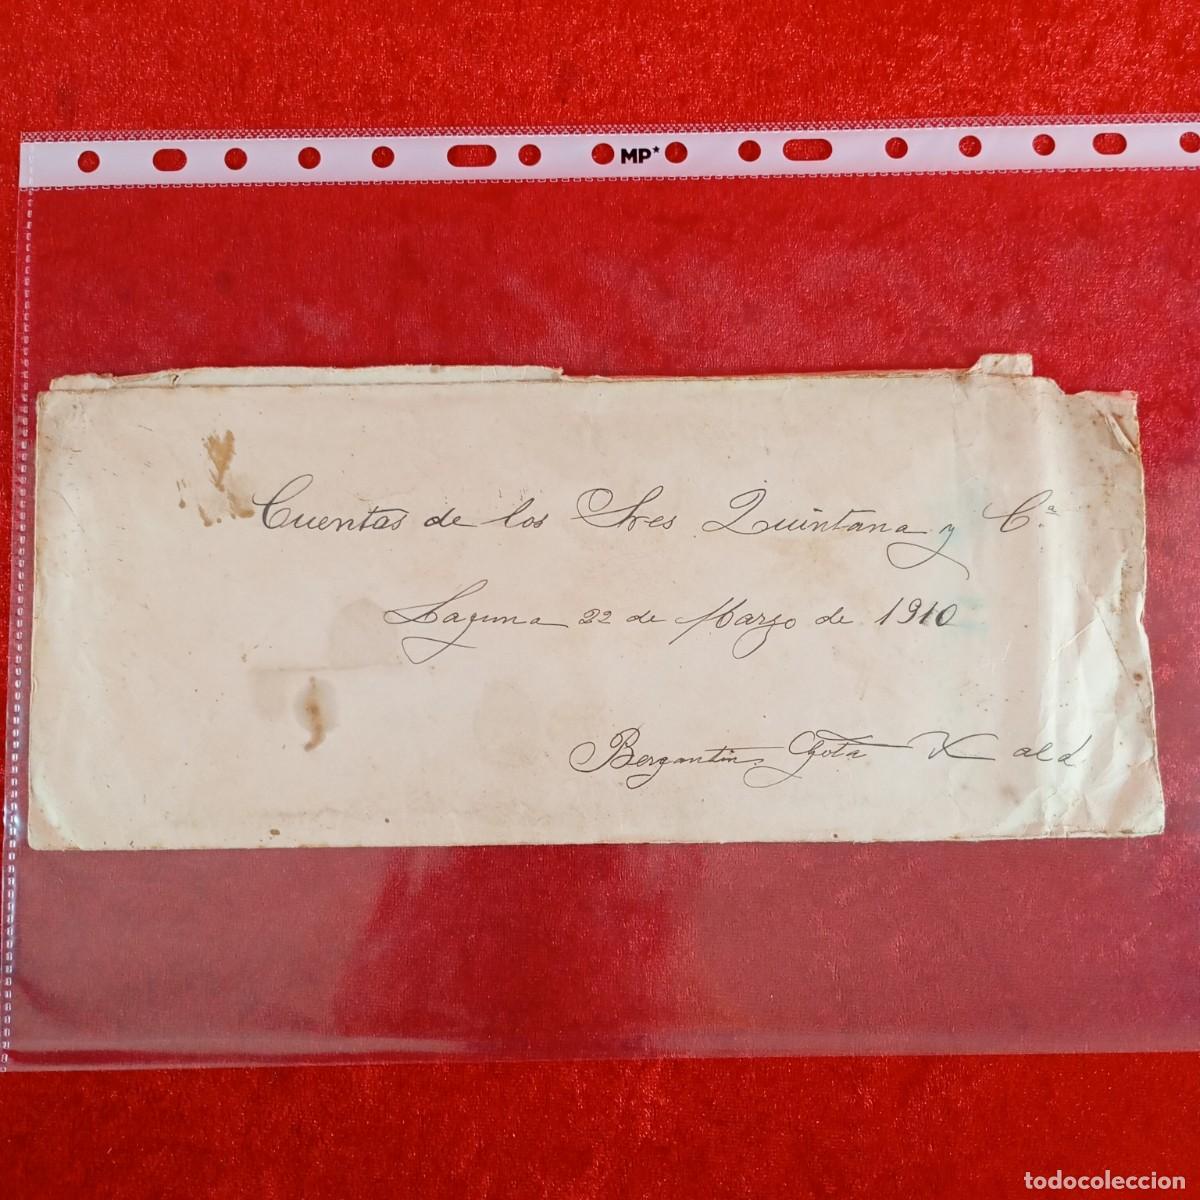 MP*
Cuentas de los Sres Quintana y Cª
Laguna 22 de Marzo de 1910
Bergantin Gota
todocoleccion